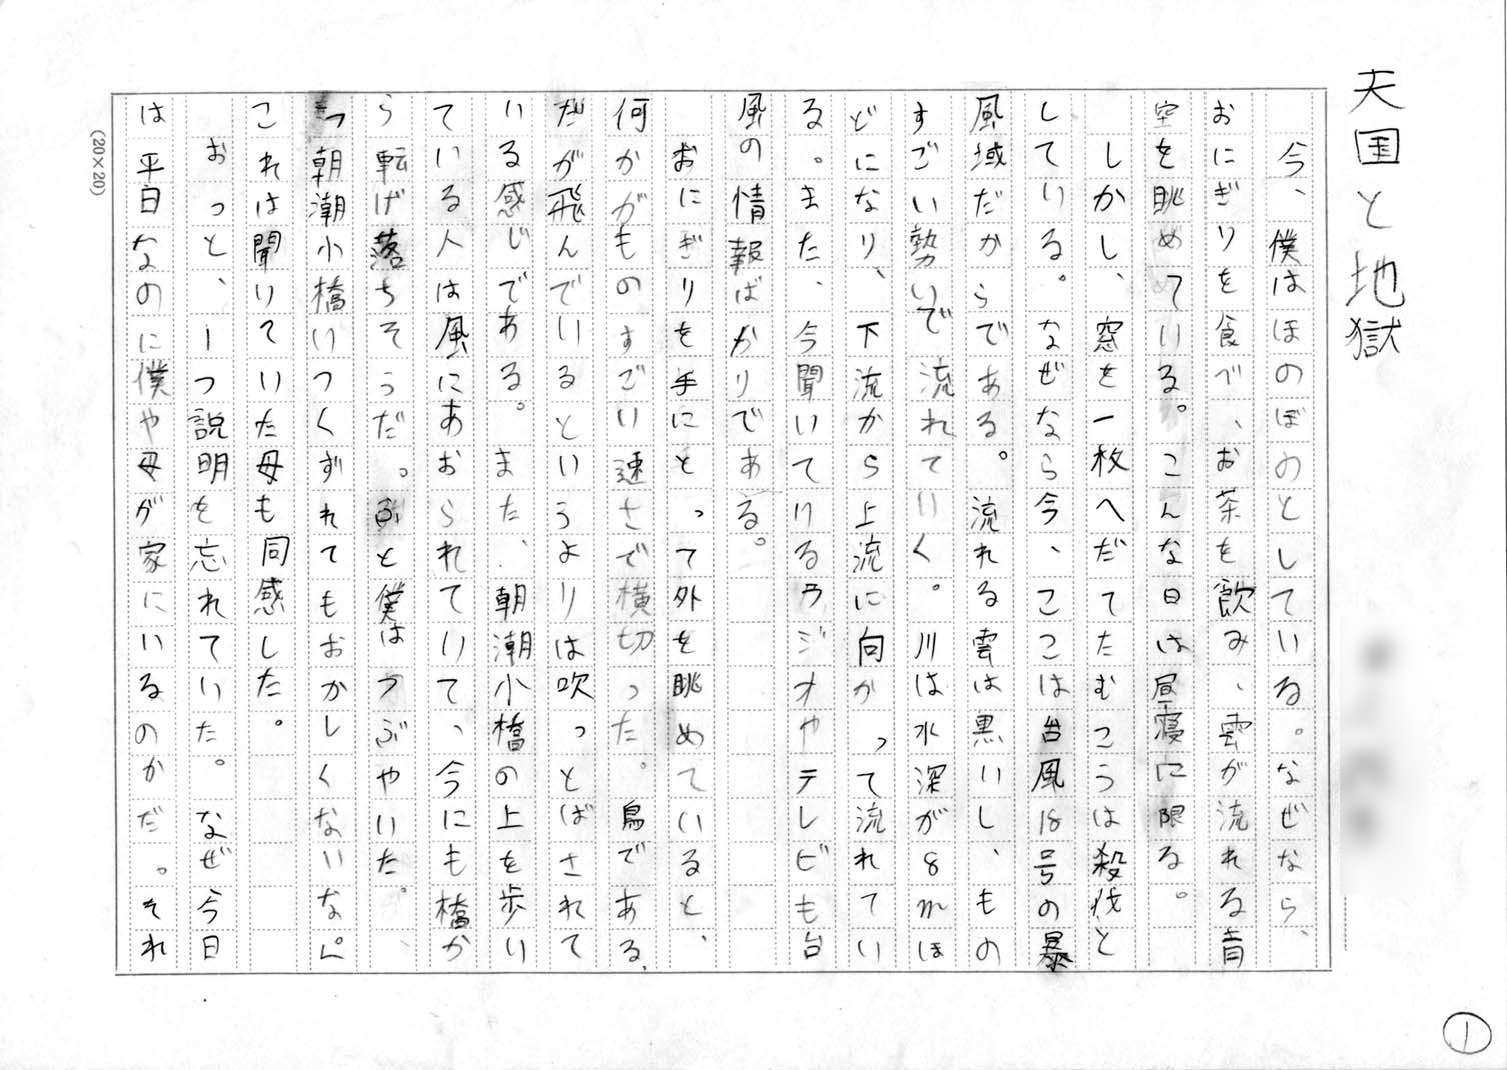 天国と地獄
今、僕はほのぼのとしている。なぜなら、
おにぎりを食べ、お茶を飲み、雲が流れる青
空を眺めている。こんな日は昼寝に限る。
しかし、窓を一枚へだてたむこうは殺伐と
している。なぜなら今、ここは台風18号の暴
風域だからである。流れる雲は黒いし、もの
すごい勢いで流れていく。川は水深が8mほ
どになり、下流から上流に向かって流れてい
る。また、今聞いているラジオやテレビも台
風の情報ばかりである。
おにぎりを手にとって外を眺めていると、
何かがものすごい速さで横切った。鳥である、
だが飛んでいるというよりは吹っとばされて
いる感じである。また、朝潮小橋の上を歩い
ている人は風にあおられていて、今にも橋か
ら転げ落ちそうだ。ふと僕はつぶやいた。
「朝潮小橋いつくずれてもおかしくないな。」
これは聞いていた母も同感した。
おっと、一つ説明を忘れていた。なぜ今日
は平日なのに僕や母が家にいるのかだ。それ
(20×20)
1